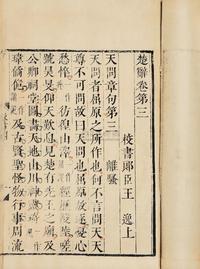 楚辭卷第三
校書郎臣王 逸上
天問章句第三 離騷
天問者屈原之所作也何不言問天天
尊不可問故曰天問也屈原放逐憂心
愁悴 彷徨山澤 陵陸嗟
號昊旻仰天歎息見楚有先王之廟及
公卿祠堂圖畫天地山川神靈琦
瑋僪佹 及古賢聖怪物行事周流